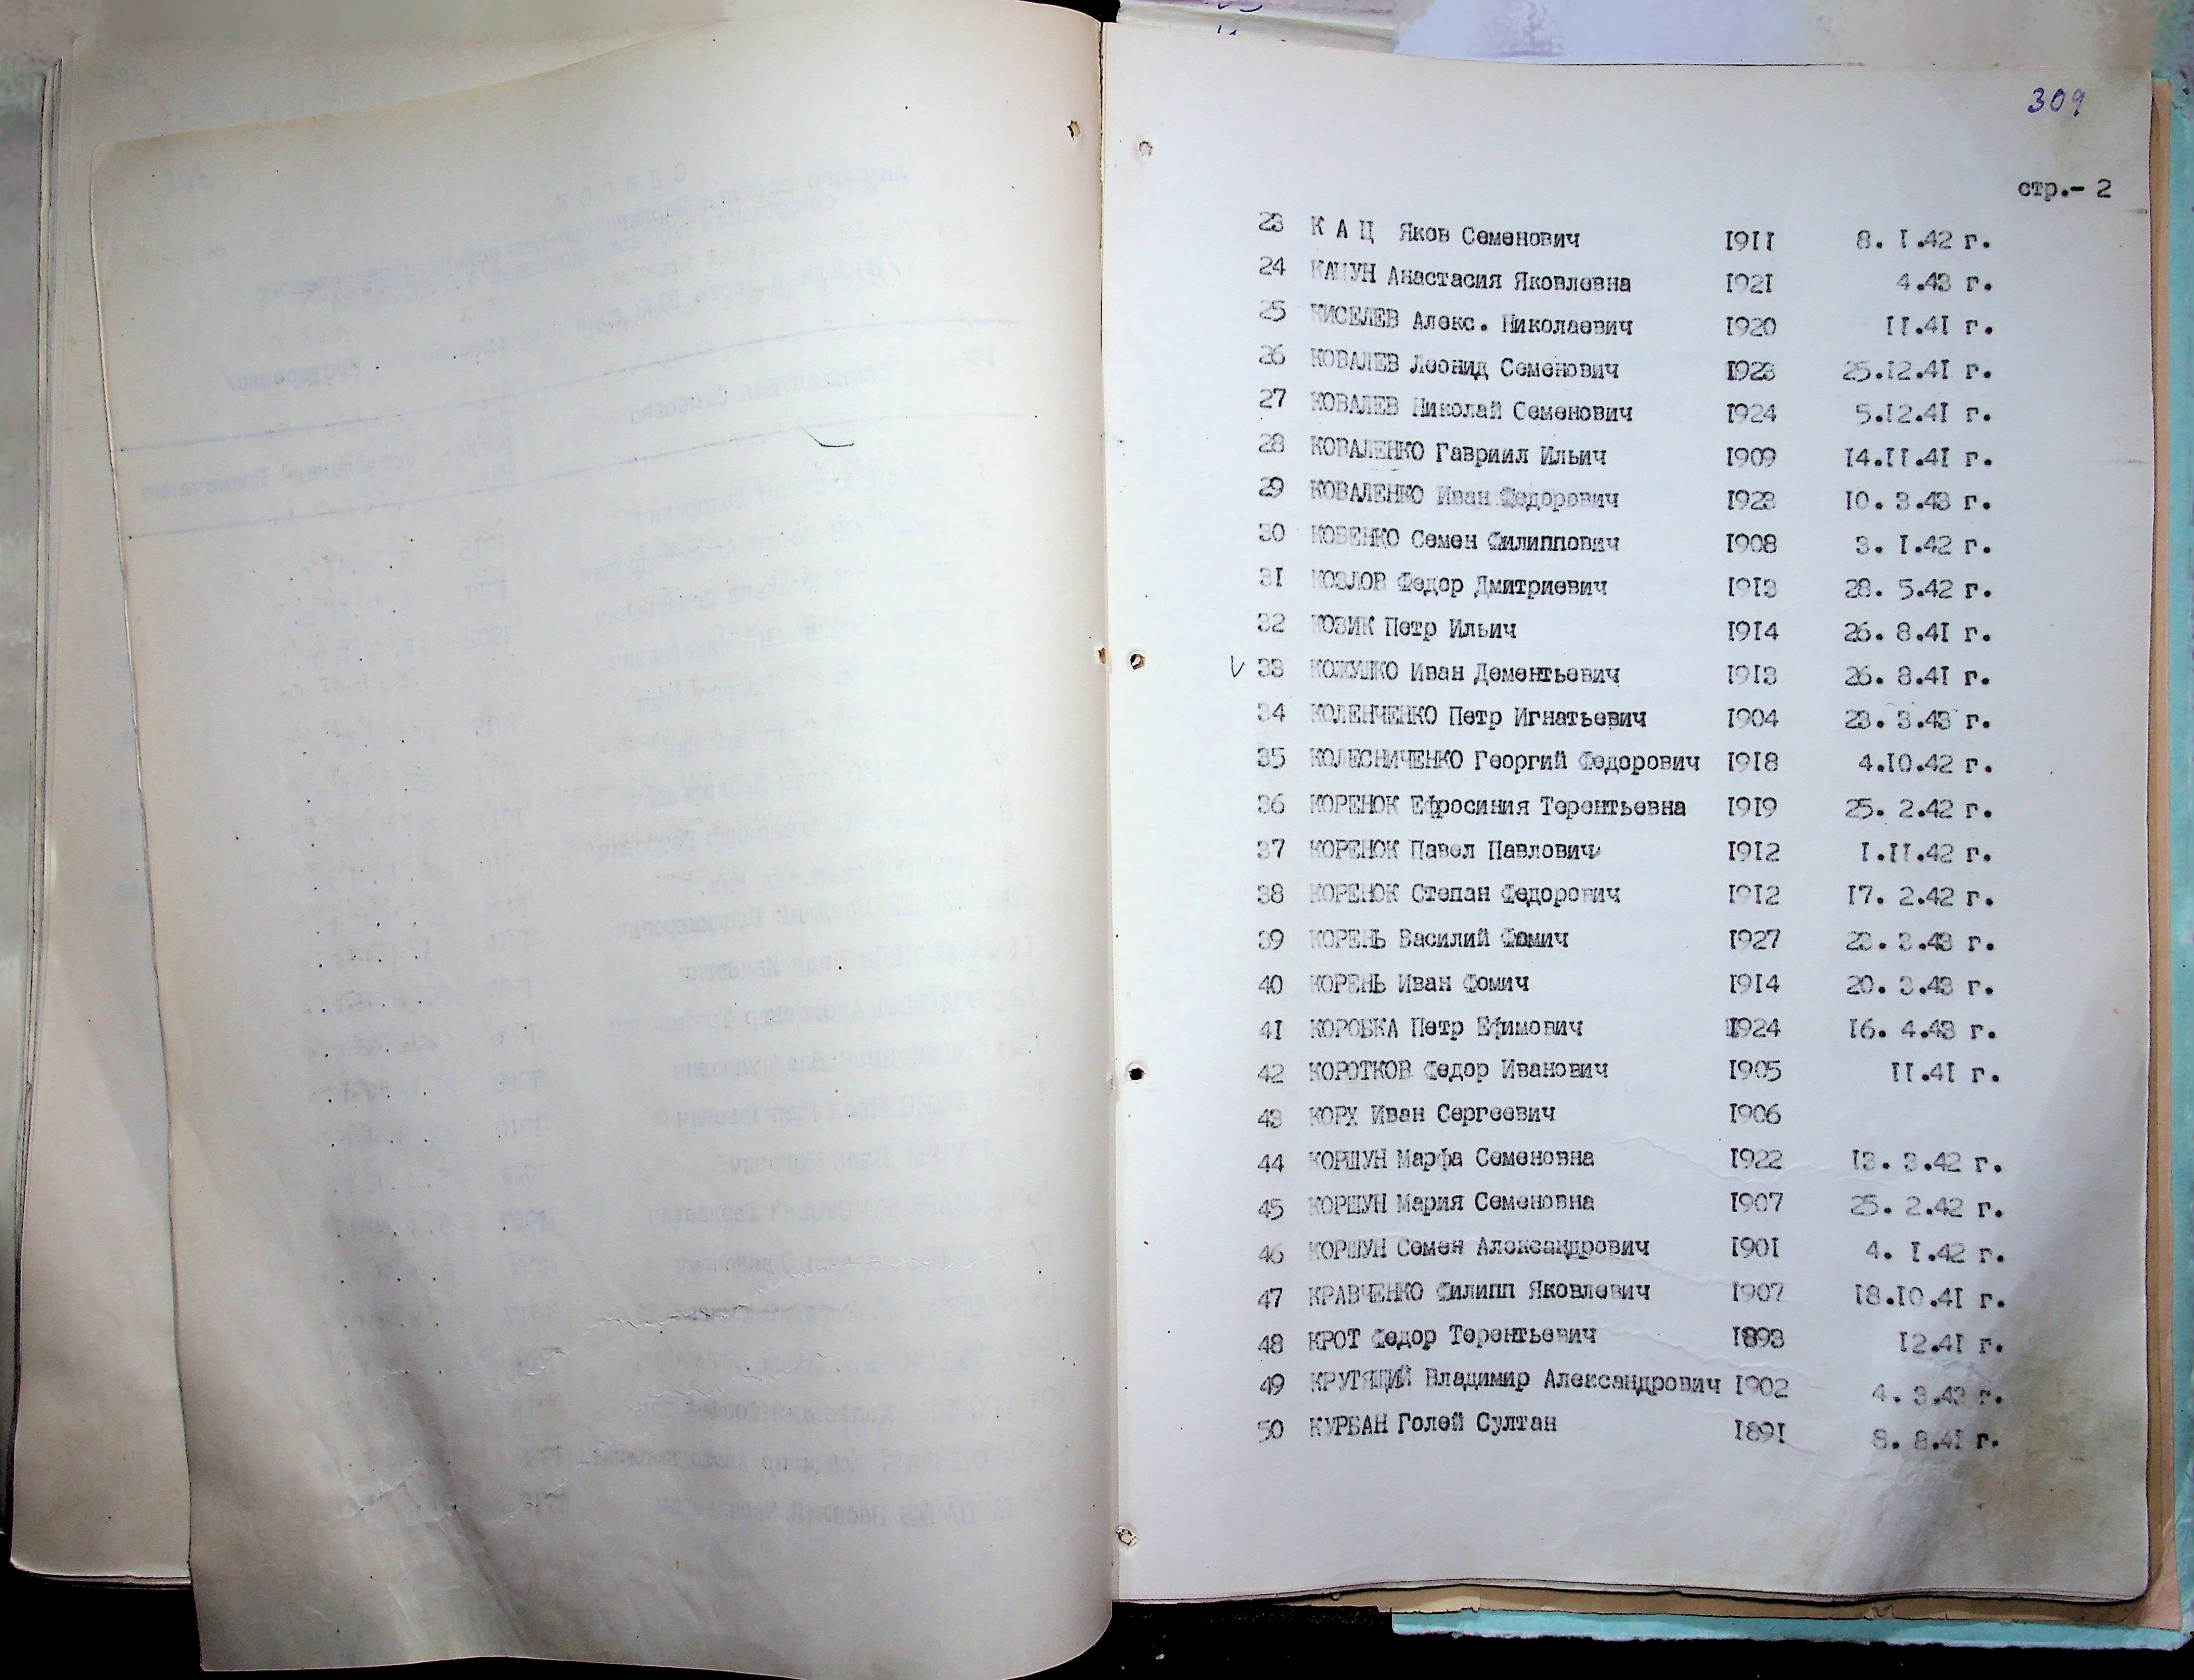 309
стр.- 2
23 К А Ц Яков Семенович 1911 8. 1.42 г.
24 КАЦУН Анастасия Яковлевна 1921 4.43 г.
25 КИСЕЛЕВ Алекс. Николаевич 1920 11.41 г.
26 КОВАЛЕВ Леонид Семенович 1923 25.12.41 г.
27 КОВАЛЕВ Николай Семенович 1924 5.12.41 г.
28 КОВАЛЕНКО Гавриил Ильич 1909 14.11.41 г.
29 КОВАЛЕНКО Иван Федорович 1923 10. 3.43 г.
30 КОВЕНКО Семен Филиппович 1908 3. 1.42 г.
31 КОЗЛОВ Федор Дмитриевич 1913 28. 5.42 г.
32 КОЗИК Петр Ильич 1914 26. 8.41 г.
33 КОЖУШКО Иван Дементьевич 1913 26. 8.41 г.
34 КОЛЕНЧЕНКО Петр Игнатьевич 1904 23. 3.43 г.
35 КОЛЕСНИЧЕНКО Георгий Федорович 1918 4.10.42 г.
36 КОРЕНОК Ефросиния Терентьевна 1919 25. 2.42 г.
37 КОРЕНОК Павел Павлович 1912 1.11.42 г.
38 КОРЕНОК Степан Федорович 1912 17. 2.42 г.
39 КОРЕНЬ Василий Фомич 1927 23. 3.43 г.
40 КОРЕНЬ Иван Фомич 1914 20. 3.43 г.
41 КОРОБКА Петр Ефимович 1924 16. 4.43 г.
42 КОРОТКОВ Федор Иванович 1905 11.41 г.
43 КОРХ Иван Сергеевич 1906
44 КОРШУН Марфа Семеновна 1922 13. 3.42 г.
45 КОРШУН Мария Семеновна 1907 25. 2.42 г.
46 КОРШУН Семен Александрович 1901 4. 1.42 г.
47 КРАВЧЕНКО Филипп Яковлевич 1907 18.10.41 г.
48 КРОТ Федор Терентьевич 1893 12.41 г.
49 КРУТЯЩИЙ Владимир Александрович 1902 4. 3.43 г.
50 КУРБАН Голей Султан 1891 8. 8.41 г.